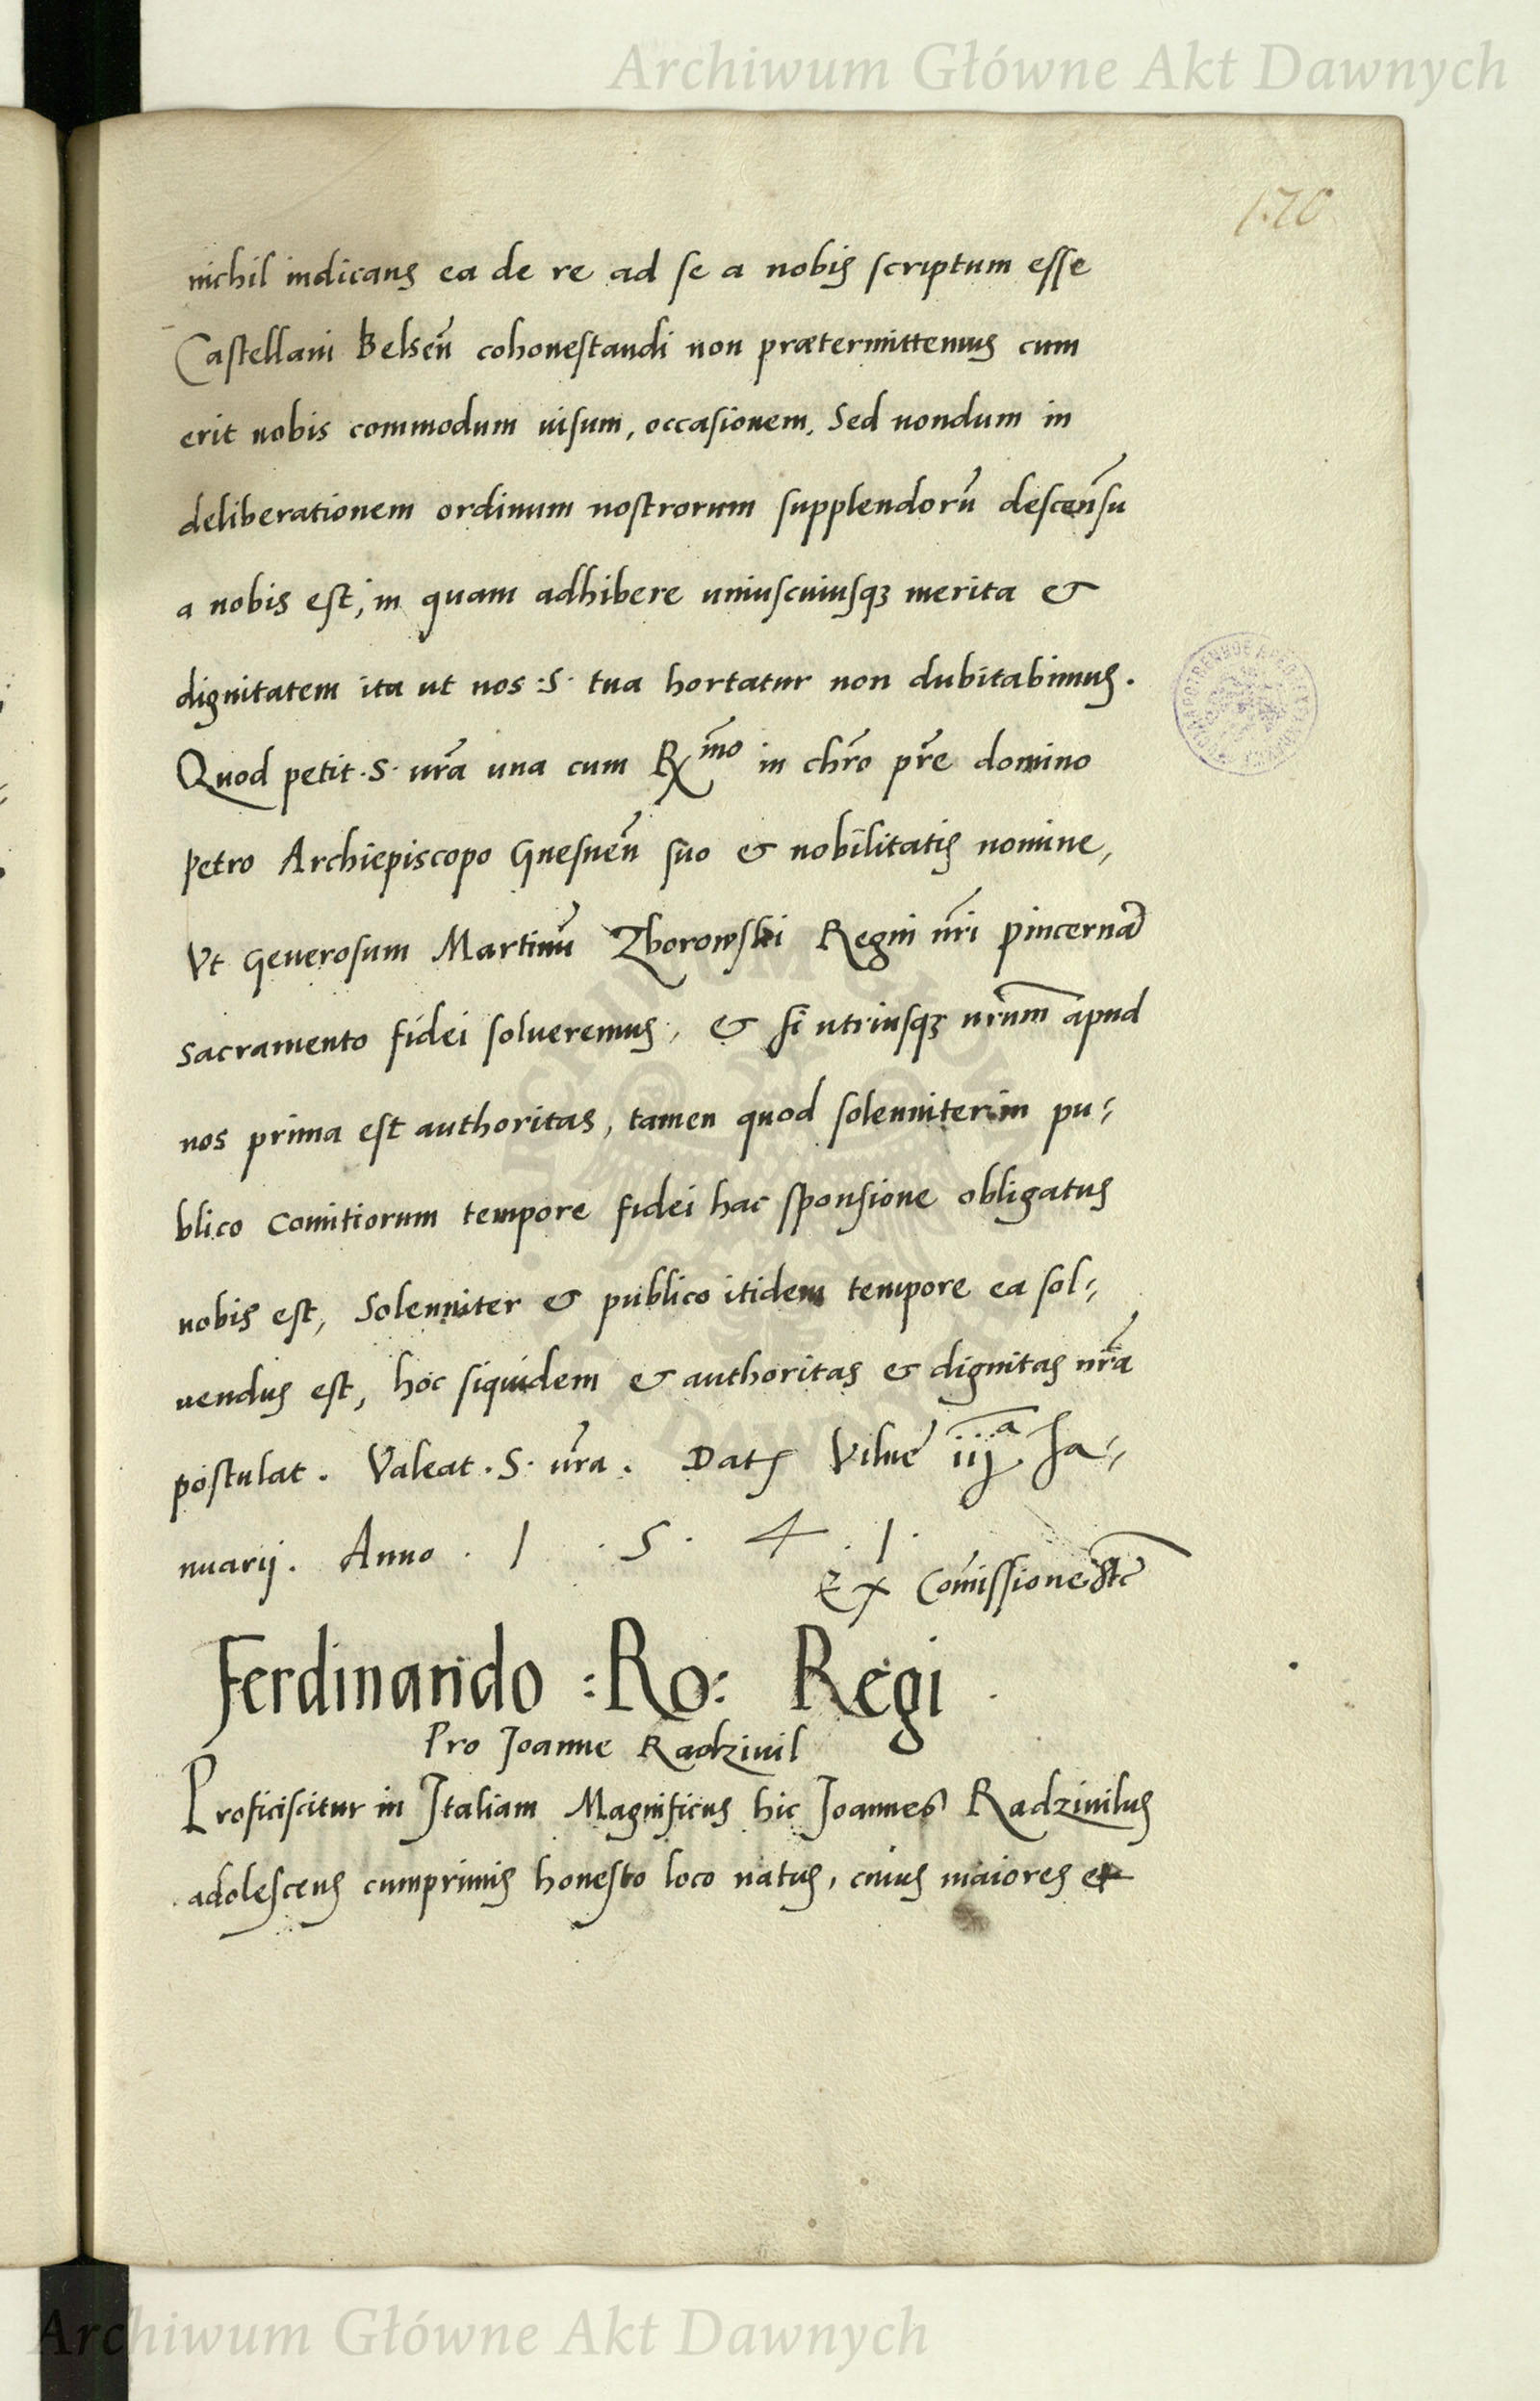 Archiwum Główne Akt Dawnych
170
nichil indicans ea de re ad se a nobis scriptum esse
Castellani Belsen̄ cohonestandi non prætermittemus cum
erit nobis commodum uisum, occasionem, Sed nondum in
deliberationem ordinum nostrorum supplendorū descensū
a nobis est, in quam adhibere uniuscuiusqꝫ merita &
dignitatem ita ut nos ·S· tua hortatur non dubitabimus.
Quod petit ·S· ur̄a una cum Rx̄mo in chr̄o pr̄e domino
Petro Archiepiscopo Gnesnen̄ suo & nobilitatis nomine,
Vt Generosum Martinū Zborowski Regni nr̄i pincernā
sacramento fidei solueremus, & si utriusqꝫ ur̄um apud
nos prima est authoritas, tamen quod solenniter in pu-
blico Comitiorum tempore fidei hac sponsione obligatus
nobis est, Solenniter & publico itidem tempore ea sol-
uendus est, hoc siquidem & authoritas & dignitas nr̄a
postulat. Valeat ·S· ur̄a. Dat Vilne iija Ja-
nuarij. Anno . 1 . 5 . 4 . 1 .
Ex Com̄issione etc
Ferdinando :Ro: Regi
Pro Joanne Radziuil
Proficiscitur in Italiam Magnificus hic Joannes Radziuilus
adolescens cumprimis honesto loco natus, cuius maiores et
Archiwum Główne Akt Dawnych